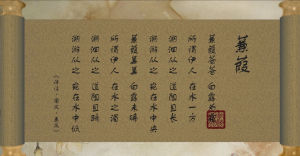 蒹葭
蒹葭苍苍 白露为
所谓伊人 在水一方
溯洄从之 道阻且长
溯游从之 宛在水中央
蒹葭萋萋 白露未晞
所谓伊人 在水之湄
溯洄从之 道阻且跻
溯游从之 宛在水中坻
《诗经·国风·秦风》